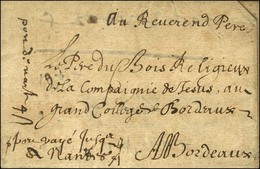 Au Reverend Pere
Le Pere du Bois Religieux
de la Compaignie de Jesus, au
grand College de Bordeaux
A Bordeaux
port paye Jusqu
a Nantes